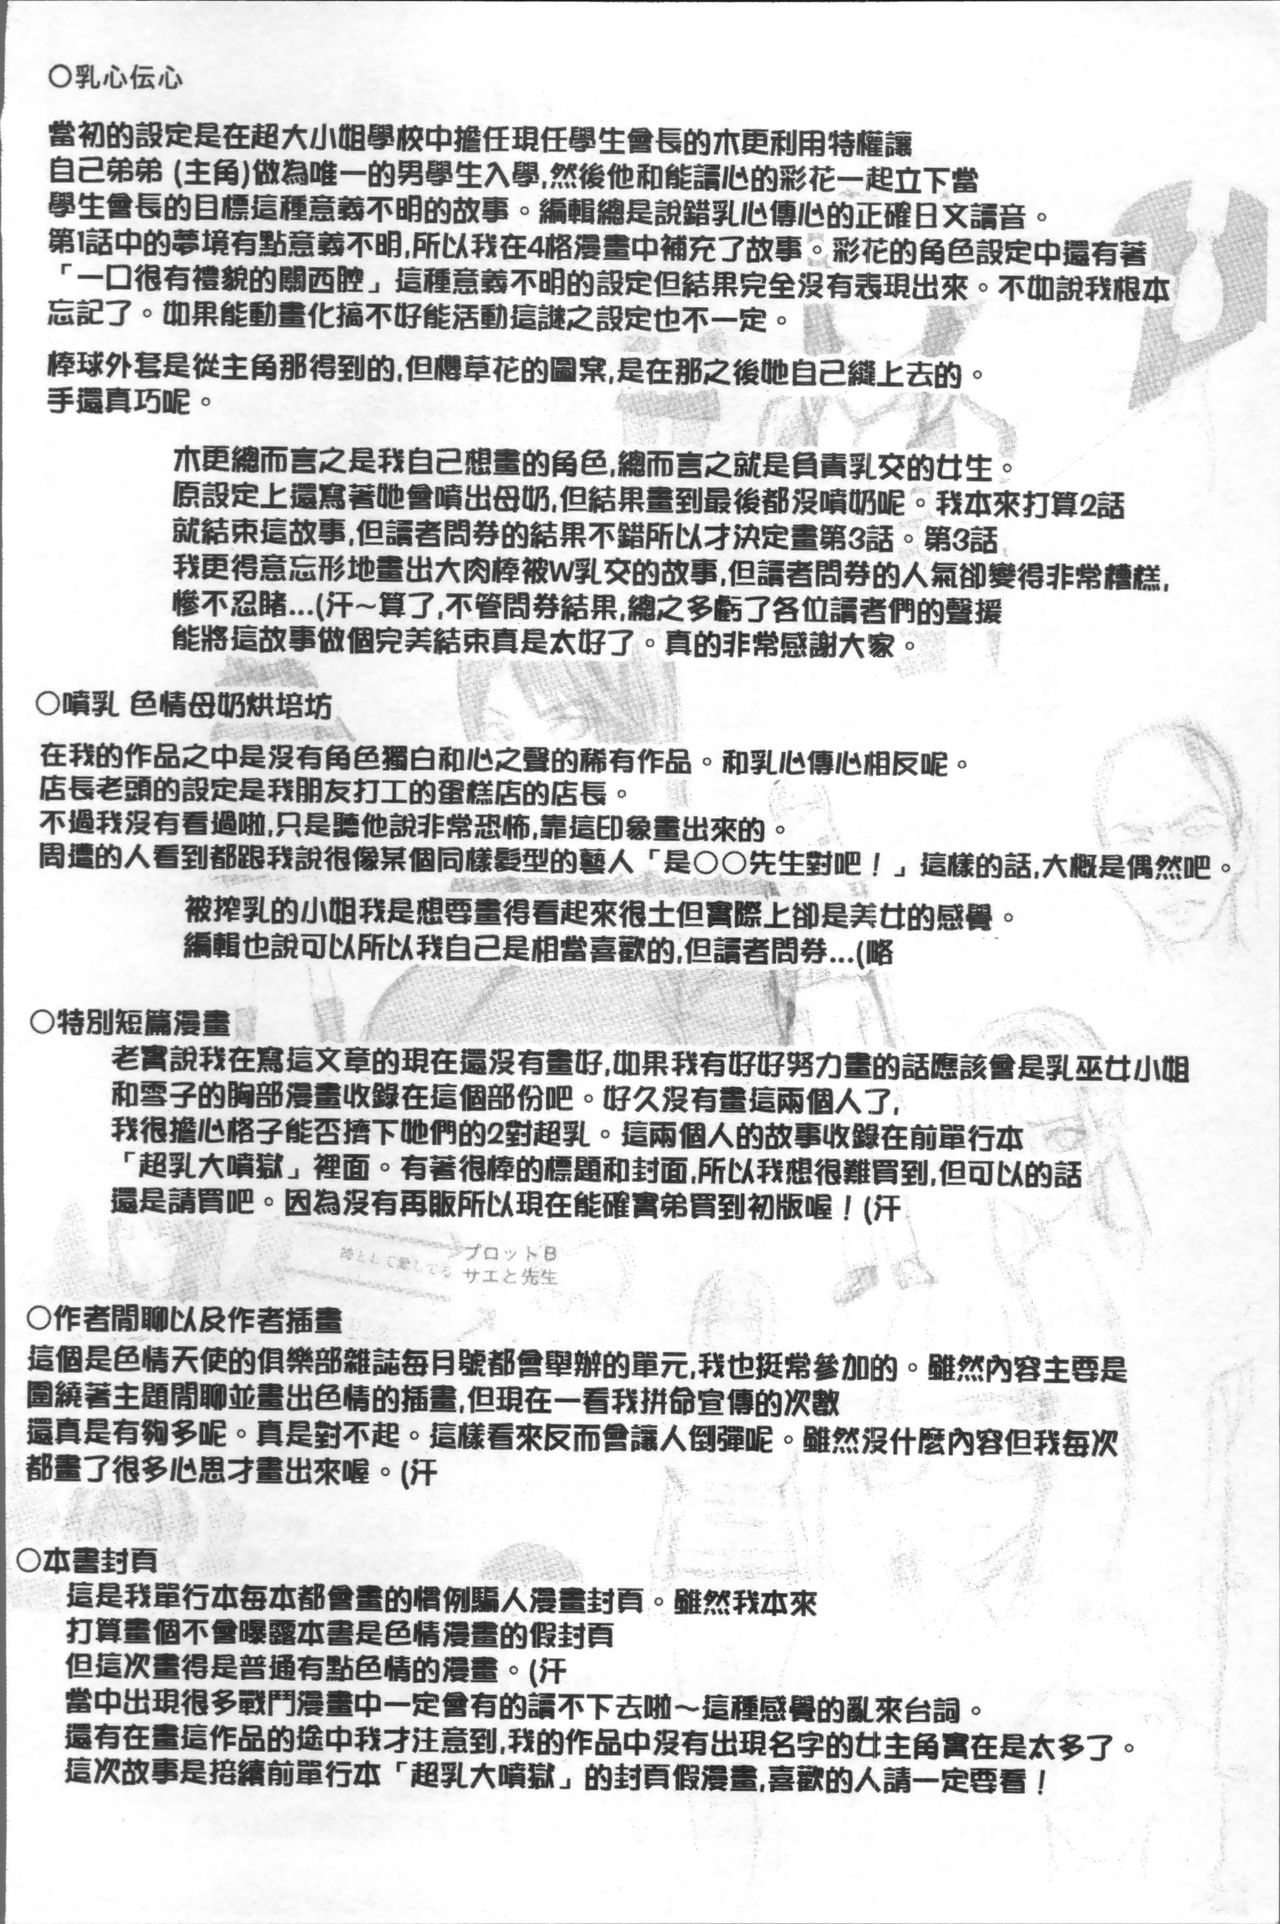 ○乳心伝心
當初的設定是在超大小姐學校中擔任現任學生會長的木更利用特權讓
自己弟弟 (主角)做為唯一的男學生入學,然後他和能讀心的彩花一起立下當
學生會長的目標這種意義不明的故事。編輯總是說錯乳心傳心的正確日文讀音。
第1話中的夢境有點意義不明,所以我在4格漫畫中補充了故事。彩花的角色設定中還有著
「一口很有禮貌的關西腔」這種意義不明的設定但結果完全沒有表現出來。不如說我根本
忘記了。如果能動畫化搞不好能活動這謎之設定也不一定。
棒球外套是從主角那得到的,但櫻草花的圖案,是在那之後她自己縫上去的。
手還真巧呢。
木更總而言之是我自己想畫的角色,總而言之就是負責乳交的女生。
原設定上還寫著她會噴出母奶,但結果畫到最後都沒噴奶呢。我本來打算2話
就結束這故事,但讀者問券的結果不錯所以才決定畫第3話。第3話
我更得意忘形地畫出大肉棒被W乳交的故事,但讀者問券的人氣卻變得非常糟糕,
慘不忍睹...(汗～算了,不管問券結果,總之多虧了各位讀者們的聲援
能將這故事做個完美結束真是太好了。真的非常感謝大家。
○噴乳 色情母奶烘培坊
在我的作品之中是沒有角色獨白和心之聲的稀有作品。和乳心傳心相反呢。
店長老頭的設定是我朋友打工的蛋糕店的店長。
不過我沒有看過啦,只是聽他說非常恐怖,靠這印象畫出來的。
周遭的人看到都跟我說很像某個同樣髮型的藝人「是○○先生對吧！」這樣的話,大概是偶然吧。
被搾乳的小姐我是想要畫得看起來很土但實際上卻是美女的感覺。
編輯也說可以所以我自己是相當喜歡的,但讀者問券...(略
○特別短篇漫畫
老實說我在寫這文章的現在還沒有畫好,如果我有好好努力畫的話應該會是乳巫女小姐
和雪子的胸部漫畫收錄在這個部份吧。好久沒有畫這兩個人了,
我很擔心格子能否擠下她們的2對超乳。這兩個人的故事收錄在前單行本
「超乳大噴獄」裡面。有著很棒的標題和封面,所以我想很難買到,但可以的話
還是請買吧。因為沒有再販所以現在能確實弟買到初版喔！(汗
時として愛してる
プロットB
サエと先生
○作者閒聊以及作者插畫
這個是色情天使的俱樂部雜誌每月號都會舉辦的單元,我也挺常參加的。雖然內容主要是
圍繞著主題閒聊並畫出色情的插畫,但現在一看我拼命宣傳的次數
還真是有夠多呢。真是對不起。這樣看來反而會讓人倒彈呢。雖然沒什麼內容但我每次
都畫了很多心思才畫出來喔。(汗
○本書封頁
這是我單行本每本都會畫的慣例騙人漫畫封頁。雖然我本來
打算畫個不會曝露本書是色情漫畫的假封頁
但這次畫得是普通有點色情的漫畫。(汗
當中出現很多戰鬥漫畫中一定會有的讀不下去啦～這種感覺的亂來台詞。
還有在畫這作品的途中我才注意到,我的作品中沒有出現名字的女主角實在是太多了。
這次故事是接續前單行本「超乳大噴獄」的封頁假漫畫,喜歡的人請一定要看！